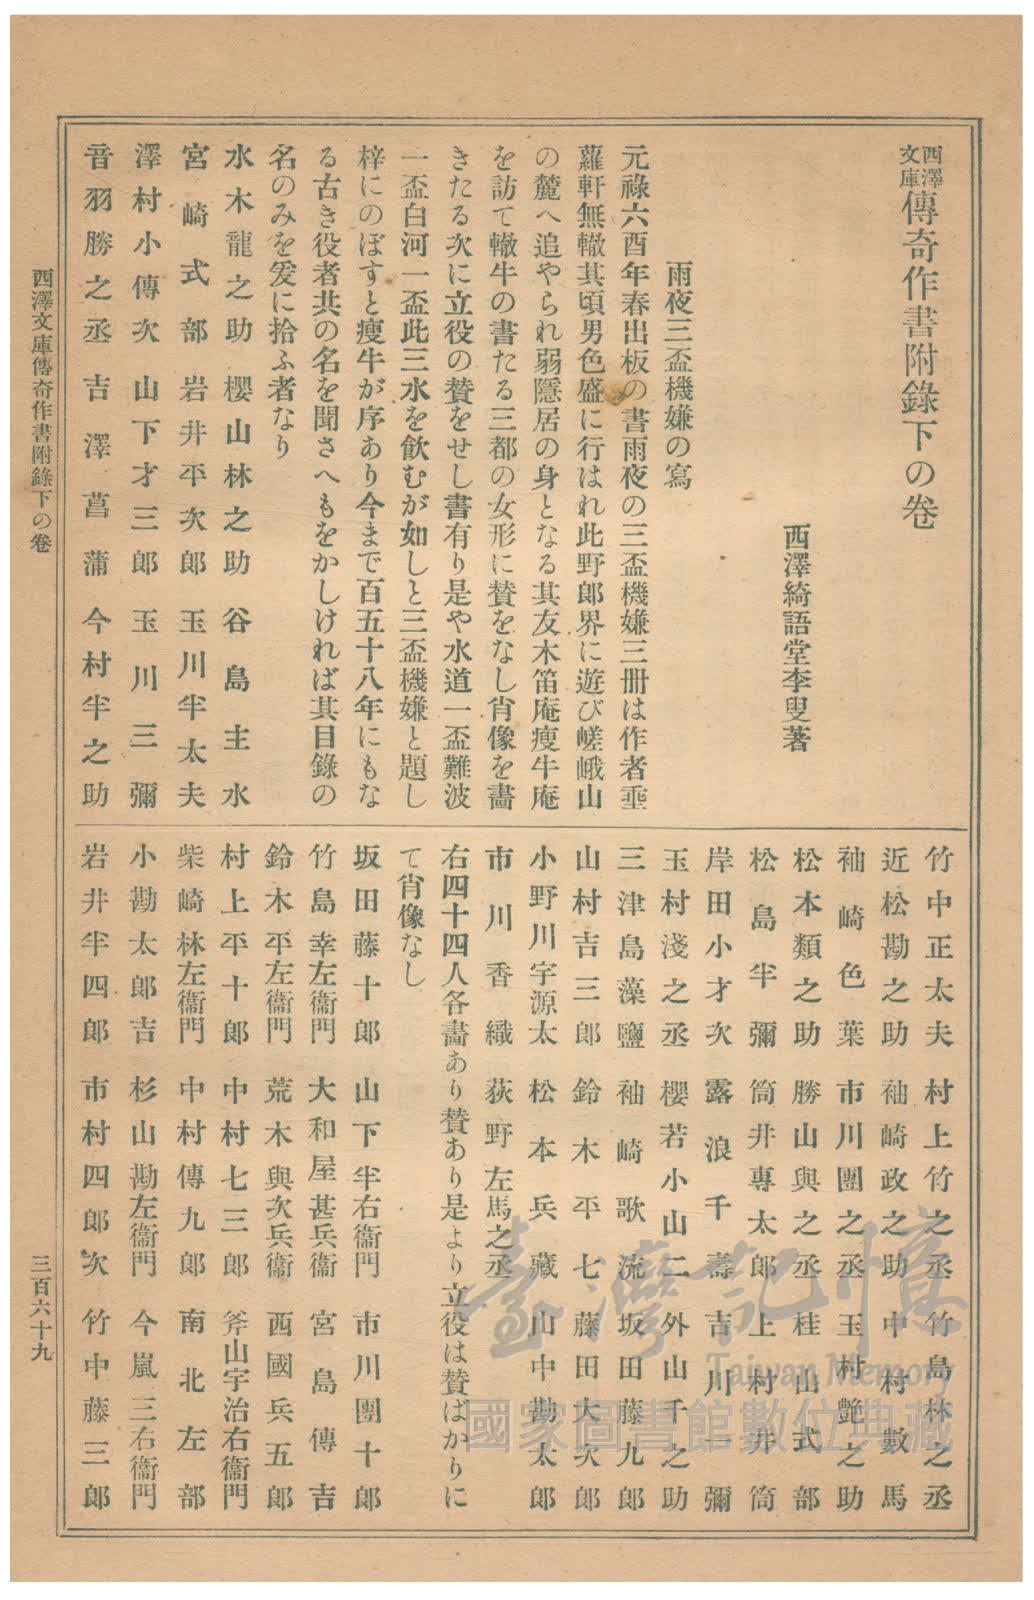 西澤文庫傳奇作書附錄下の卷
西澤綺語堂李叟著
雨夜三盃機嫌の寫
元祿六酉年春出板の書雨夜の三盃機嫌三册は作者埀
蘿軒無轍其頃男色盛に行はれ此野郎界に遊び嵯峨山
の麓へ追やられ弱隱居の身となる其友木笛庵瘦牛庵
を訪て轍牛の書たる三都の女形に贊をなし肖像を畵
きたる次に立役の贊をせし書有り是や水道一盃難波
一盃白河一盃此三水を飮むが如しと三盃機嫌と題し
梓にのぼすと瘦牛が序あり今まで百五十八年にもな
る古き役者共の名を聞さへもをかしければ其目錄の
名のみを爰に拾ふ者なり
水木龍之助 櫻山林之助 谷島主水
宮崎式部 岩井平次郎 玉川半太夫
澤村小傳次 山下才三郎 玉川三彌
音羽勝之丞 吉澤菖蒲 今村半之助
竹中正太夫 村上竹之丞 竹島林之丞
近松勘之助 袖崎政之助 中村數馬
袖崎色葉 市川團之丞 玉村艶之助
松本類之助 勝山與之丞 桂山式部
松島半彌 筒井專太郎 上村井筒
岸田小才次 露浪千壽 吉川一彌
玉村淺之丞 櫻若小山二 外山千之助
三津島藻鹽 袖崎歌流 坂田藤九郎
山村吉三郎 鈴木平七 藤田大次郎
小野川宇源太 松本兵藏 山中勘太郎
市川香織 荻野左馬之丞
右四十四人各畵あり贊あり是より立役は贊ばかりに
て肖像なし
坂田藤十郎 山下半右衞門 市川團十郎
竹島幸左衞門 大和屋甚兵衞 宮島傳吉
鈴木平左衞門 荒木與次兵衞 西國兵五郎
村上平十郎 中村七三郎 斧山宇治右衞門
柴崎林左衞門 中村傳九郎 南北左部
小勘太郎吉 杉山勘左衞門 今嵐三右衞門
岩井半四郎 市村四郎次 竹中藤三郎
西澤文庫傳奇作書附錄下の卷
三百六十九
臺灣記憶
Taiwan Memory
國家圖書館數位典藏